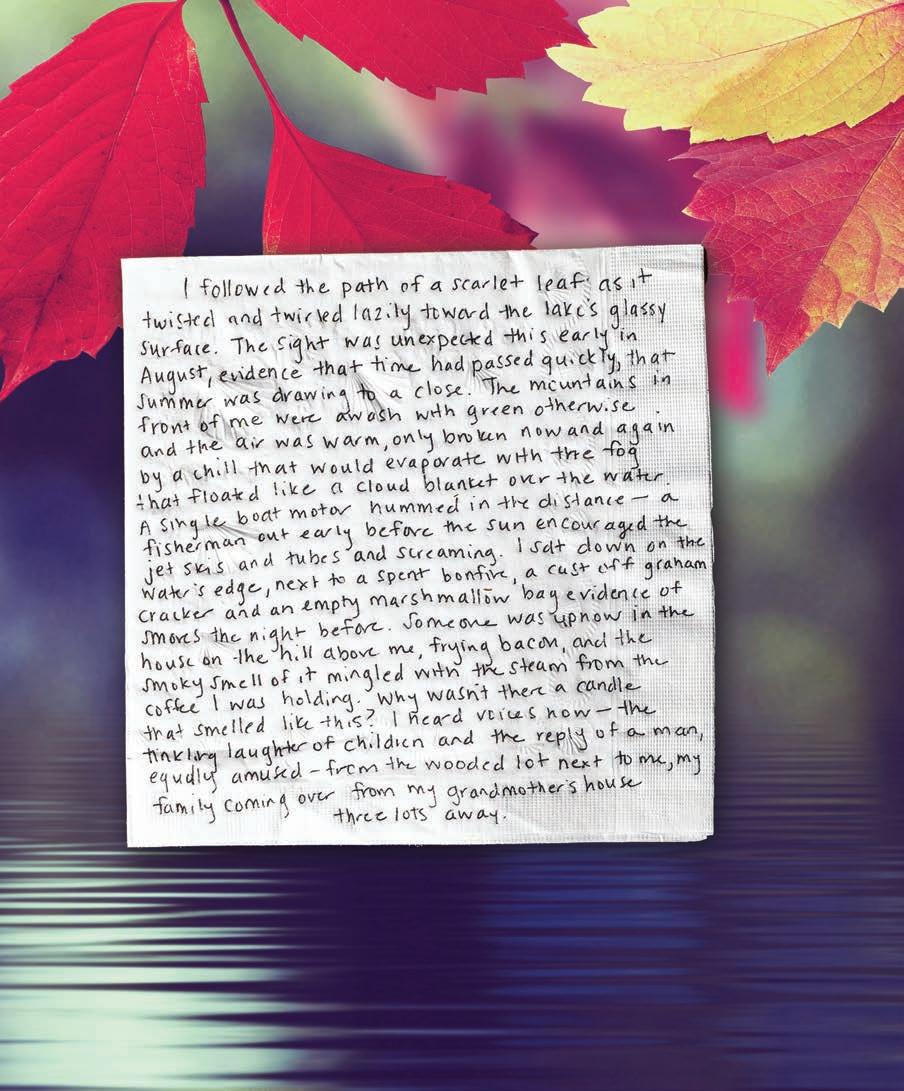 I followed the path of a scarlet leaf as it
twisted and twirled lazily toward the lake's glassy
surface. The sight was unexpected this early in
August, evidence that time had passed quickly, that
summer was drawing to a close. The mountains in
front of me were awash with green otherwise
and the air was warm, only broken now and again
by a chill that would evaporate with the fog
that floated like a cloud blanket over the water.
A single boat motor hummed in the distance — a
fisherman out early before the sun encouraged the
jet skis and tubes and screaming. I sat down on the
water's edge, next to a spent bonfire, a cast off graham
cracker and an empty marshmallow bag evidence of
smores the night before. Someone was up now in the
house on the hill above me, frying bacon, and the
smoky smell of it mingled with the steam from the
coffee I was holding. Why wasn't there a candle
that smelled like this? I heard voices now — the
tinkling laughter of children and the reply of a man,
equally amused — from the wooded lot next to me, my
family coming over from my grandmother's house
three lots away.